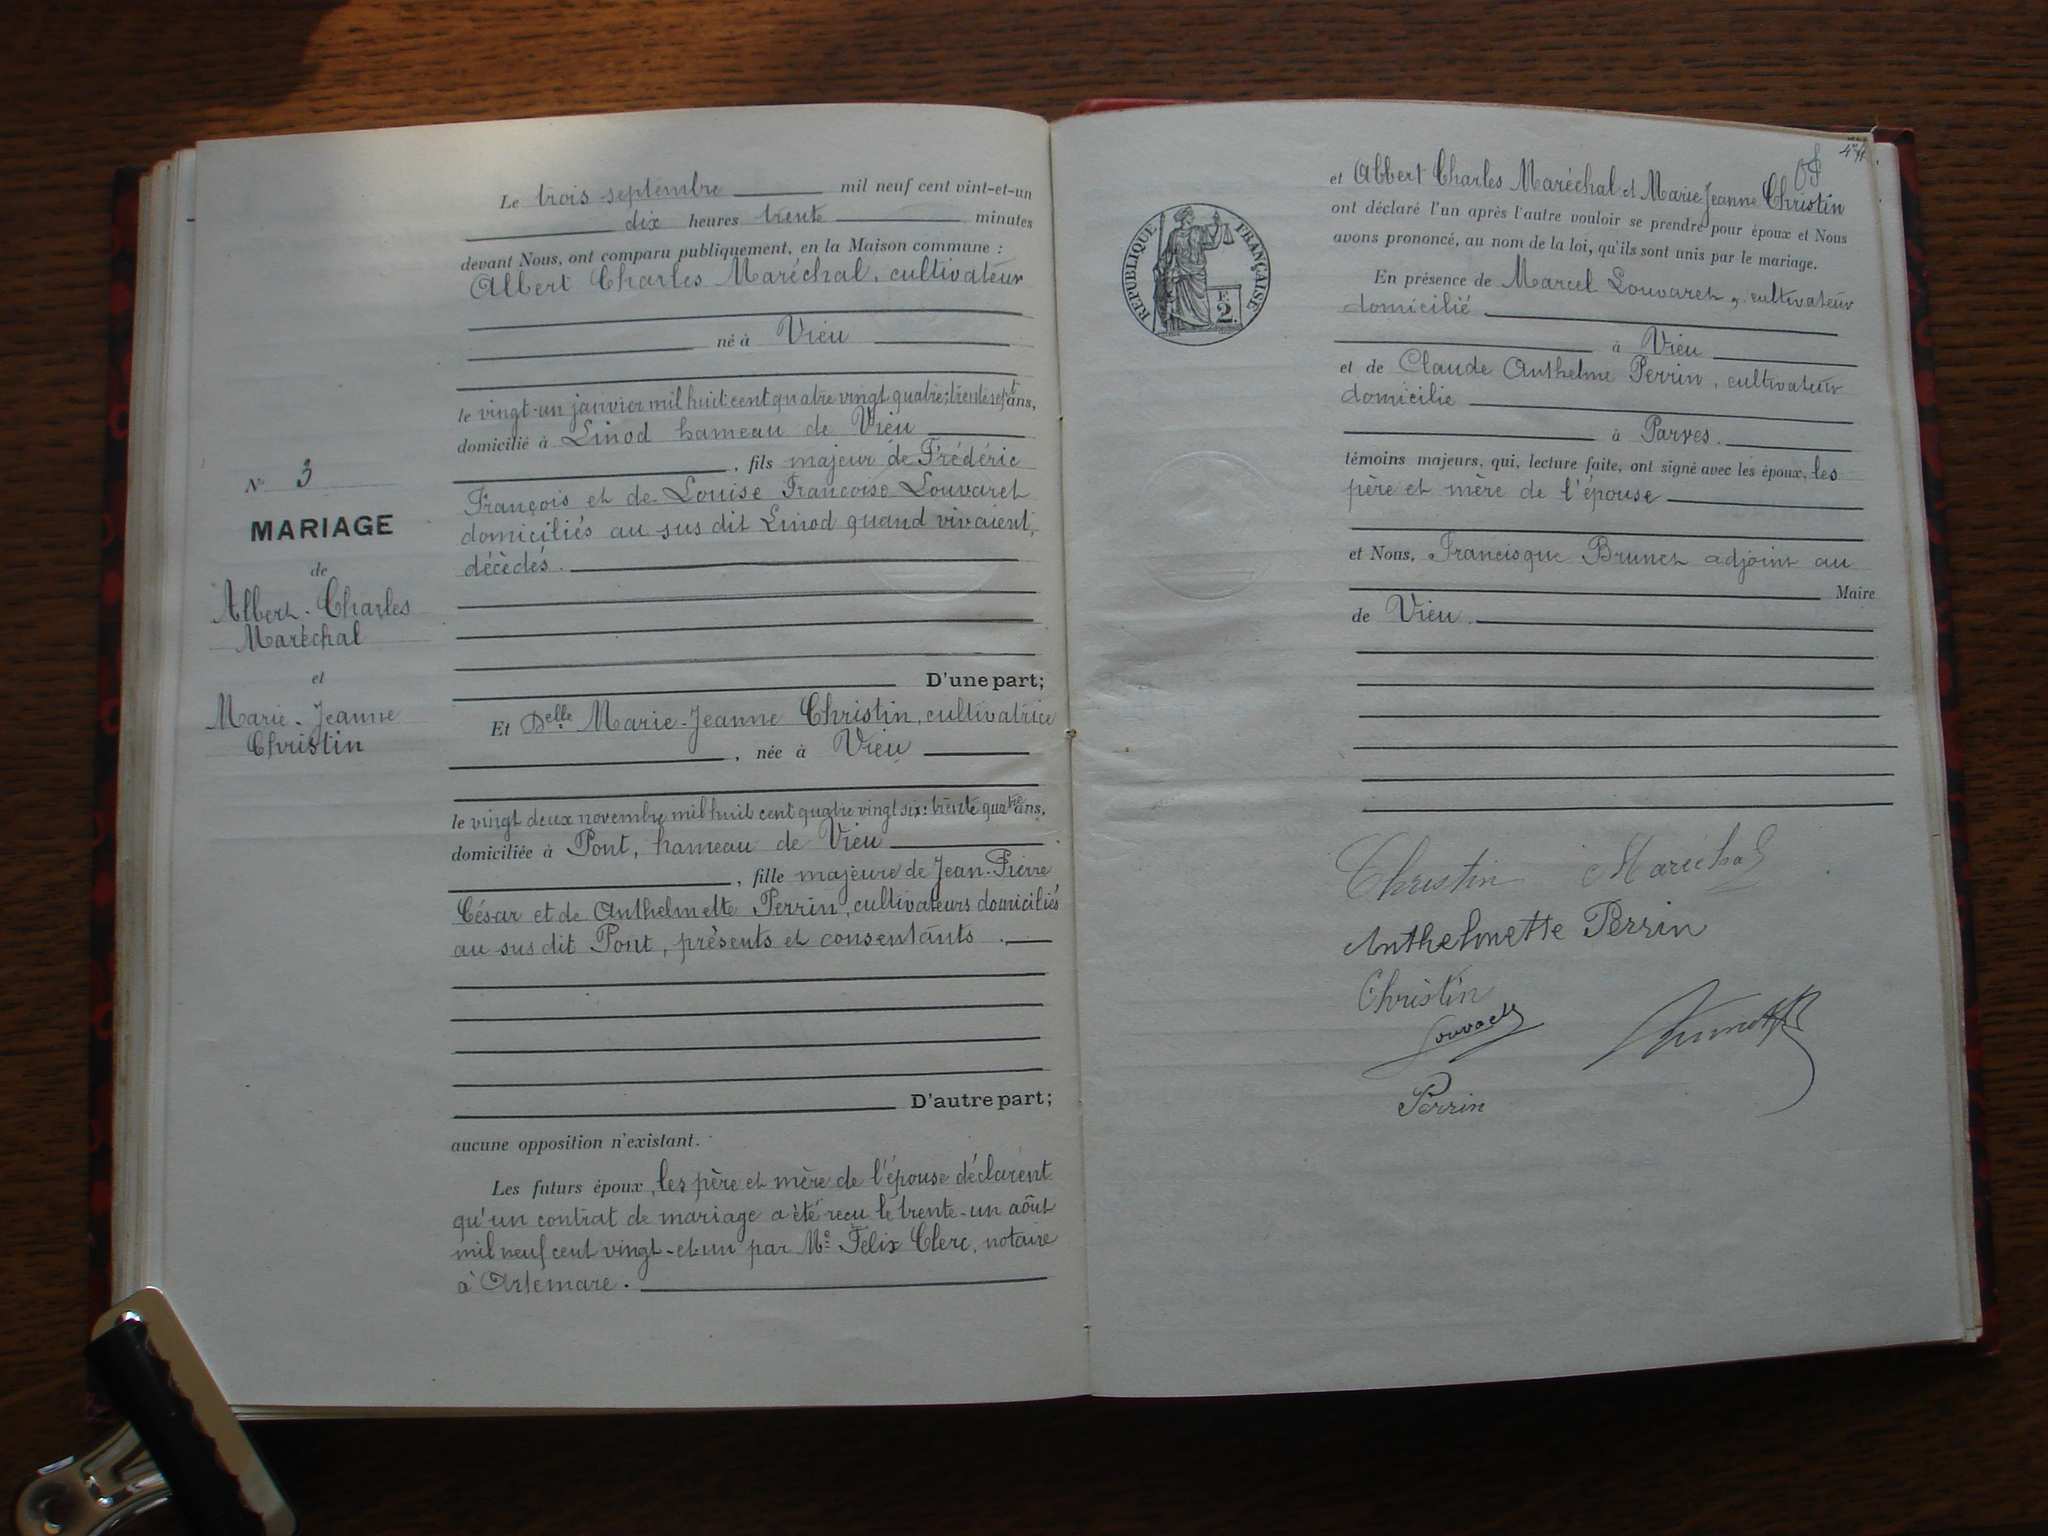 Le trois septembre mil neuf cent vint-et-un
dix heures trente minutes
devant Nous, ont comparu publiquement, en la Maison commune :
Albert Charles Maréchal, cultivateur
né à Vieu
le vingt-un janvier mil huit cent quatre vingt quatre; trente sept ans,
domicilié à Linod hameau de Vieu
, fils majeur de Frédéric
François et de Louise Françoise Louvaret
domiciliés au sus dit Linod quand vivaient,
décèdés.
D'une part;
Et Delle Marie-Jeanne Christin, cultivatrice
, née à Vieu
le vingt deux novembre mil huit cent quatre vingt six: trente quatre ans,
domiciliée à Pont, hameau de Vieu
, fille majeure de Jean-Pierre
César et de Anthelmette Perrin, cultivateurs domiciliés
au sus dit Pont, présents et consentants.
D'autre part;
aucune opposition n'existant.
Les futurs époux, les père et mère de l'épouse déclarent
qu'un contrat de mariage a été reçu le trente-un août
mil neuf cent vingt-et-un par Me Félix Clerc, notaire
à Artemare.
N° 3
MARIAGE
de
Albert-Charles
Maréchal
et
Marie-Jeanne
Christin
et Albert Charles Maréchal et Marie Jeanne Christin
ont déclaré l'un après l'autre vouloir se prendre pour époux et Nous
avons prononcé, au nom de la loi, qu'ils sont unis par le mariage.
RÉPUBLIQUE FRANÇAISE
F.
2.
En présence de Marcel Louvaret, cultivateur
domicilié
à Vieu
et de Claude Anthelme Perrin, cultivateur
domicilie
à Parves.
témoins majeurs, qui, lecture faite, ont signé avec les époux, les
père et mère de l'épouse
et Nous, Francisque Brunet adjoint au
Maire
de Vieu.
Christin Maréchal
Anthelmette Perrin
Christin
Louvaret
Brunet
Perrin